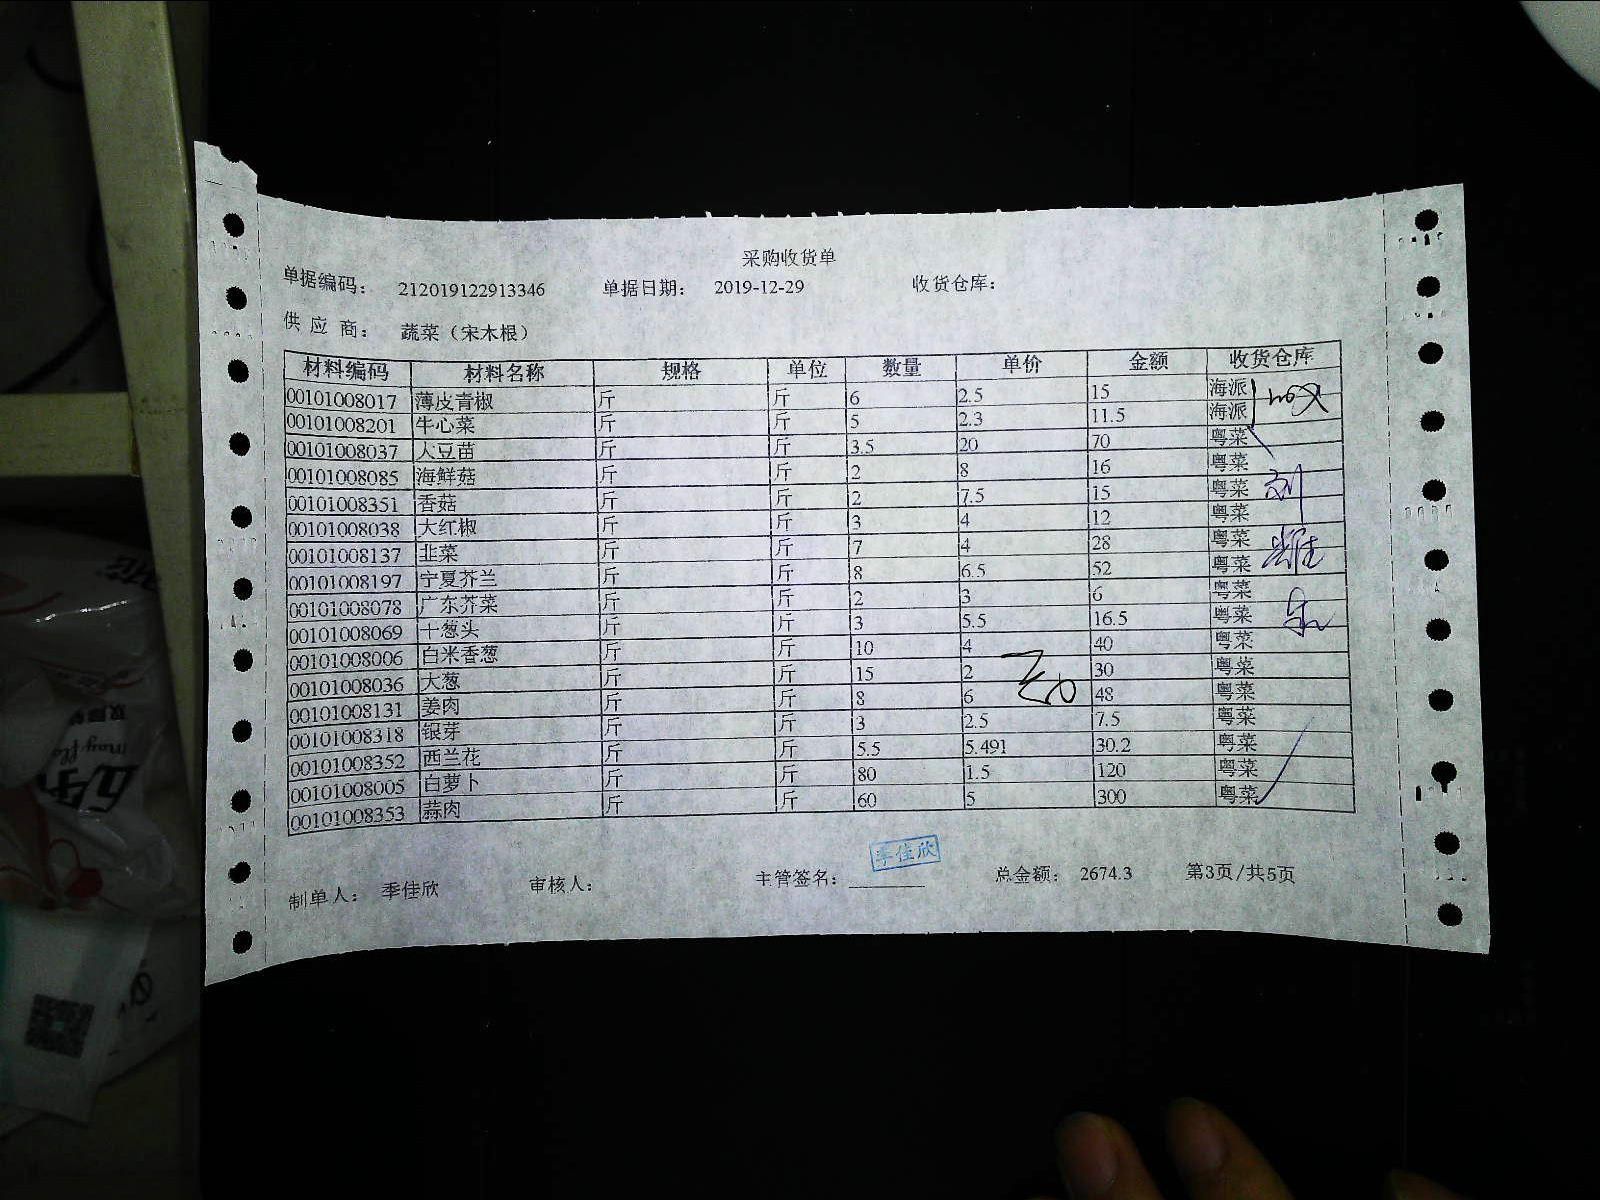 采购收货单
单据编码： 212019122913346 单据日期： 2019-12-29 收货仓库：
供应商： 蔬菜（宋木根）
材料编码 材料名称 规格 单位 数量 单价 金额 收货仓库
00101008017 薄皮青椒 斤 斤 6 2.5 15 海派
00101008201 牛心菜 斤 斤 5 2.3 11.5 海派
00101008037 大豆苗 斤 斤 3.5 20 70 粤菜
00101008085 海鲜菇 斤 斤 2 8 16 粤菜
00101008351 香菇 斤 斤 2 7.5 15 粤菜
00101008038 大红椒 斤 斤 3 4 12 粤菜
00101008137 韭菜 斤 斤 7 4 28 粤菜
00101008197 宁夏芥兰 斤 斤 8 6.5 52 粤菜
00101008078 广东芥菜 斤 斤 2 3 6 粤菜
00101008069 干葱头 斤 斤 3 5.5 16.5 粤菜
00101008006 白米香葱 斤 斤 10 4 40 粤菜
00101008036 大葱 斤 斤 15 2 30 粤菜
00101008131 姜肉 斤 斤 8 6 48 粤菜
00101008318 银芽 斤 斤 3 2.5 7.5 粤菜
00101008352 西兰花 斤 斤 5.5 5.491 30.2 粤菜
00101008005 白萝卜 斤 斤 80 1.5 120 粤菜
00101008353 蒜肉 斤 斤 60 5 300 粤菜
季佳欣
制单人： 季佳欣 审核人： 主管签名： 总金额： 2674.3 第3页/共5页